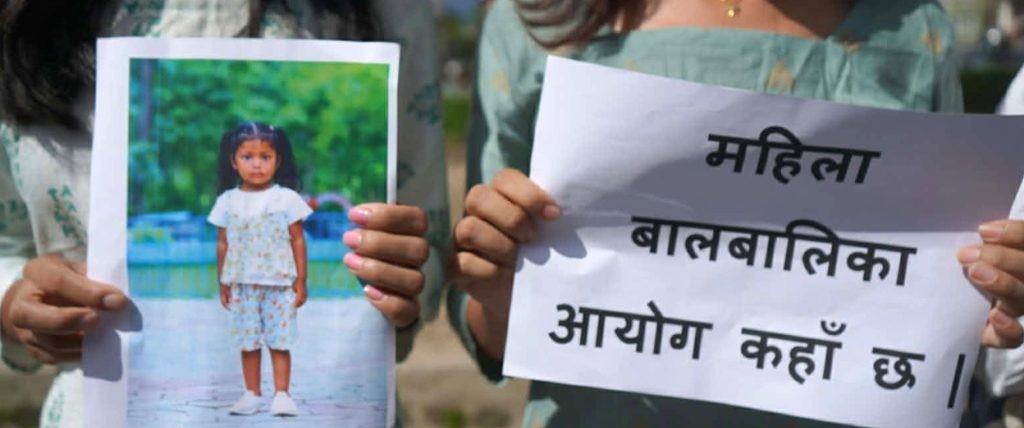 महिला
बालबालिका
आयोग कहाँ छ |